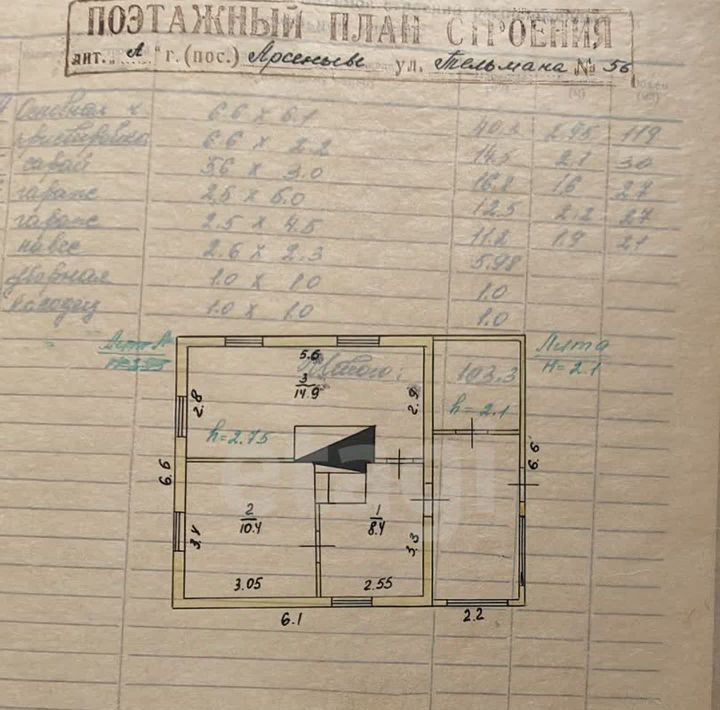 ПОЭТАЖНЫЙ ПЛАН СТРОЕНИЯ
лит. „А" г. (пос.) Арсеньев ул. Тельмана № 56
Основная 6.6 x 6.1 40.2 2.95 119
пристройка 6.6 x 2.2 14.5 2.1 30
сарай 5.6 x 3.0 16.8 1.6 27
гараж 2.5 x 5.0 12.5 2.2 27
гараж 2.5 x 4.5 11.2 1.9 21
навес 2.6 x 2.3 5.98
уборная 1.0 x 1.0 1.0
колодец 1.0 x 1.0 1.0
Лит А
Лит а
H=2.1
Итого: 103.3
5.6
3
14.9
2.8
2.9
h=2.75
h=2.1
6.6
6.6
2
10.4
1
8.4
3.4
3.3
3.05
2.55
6.1
2.2